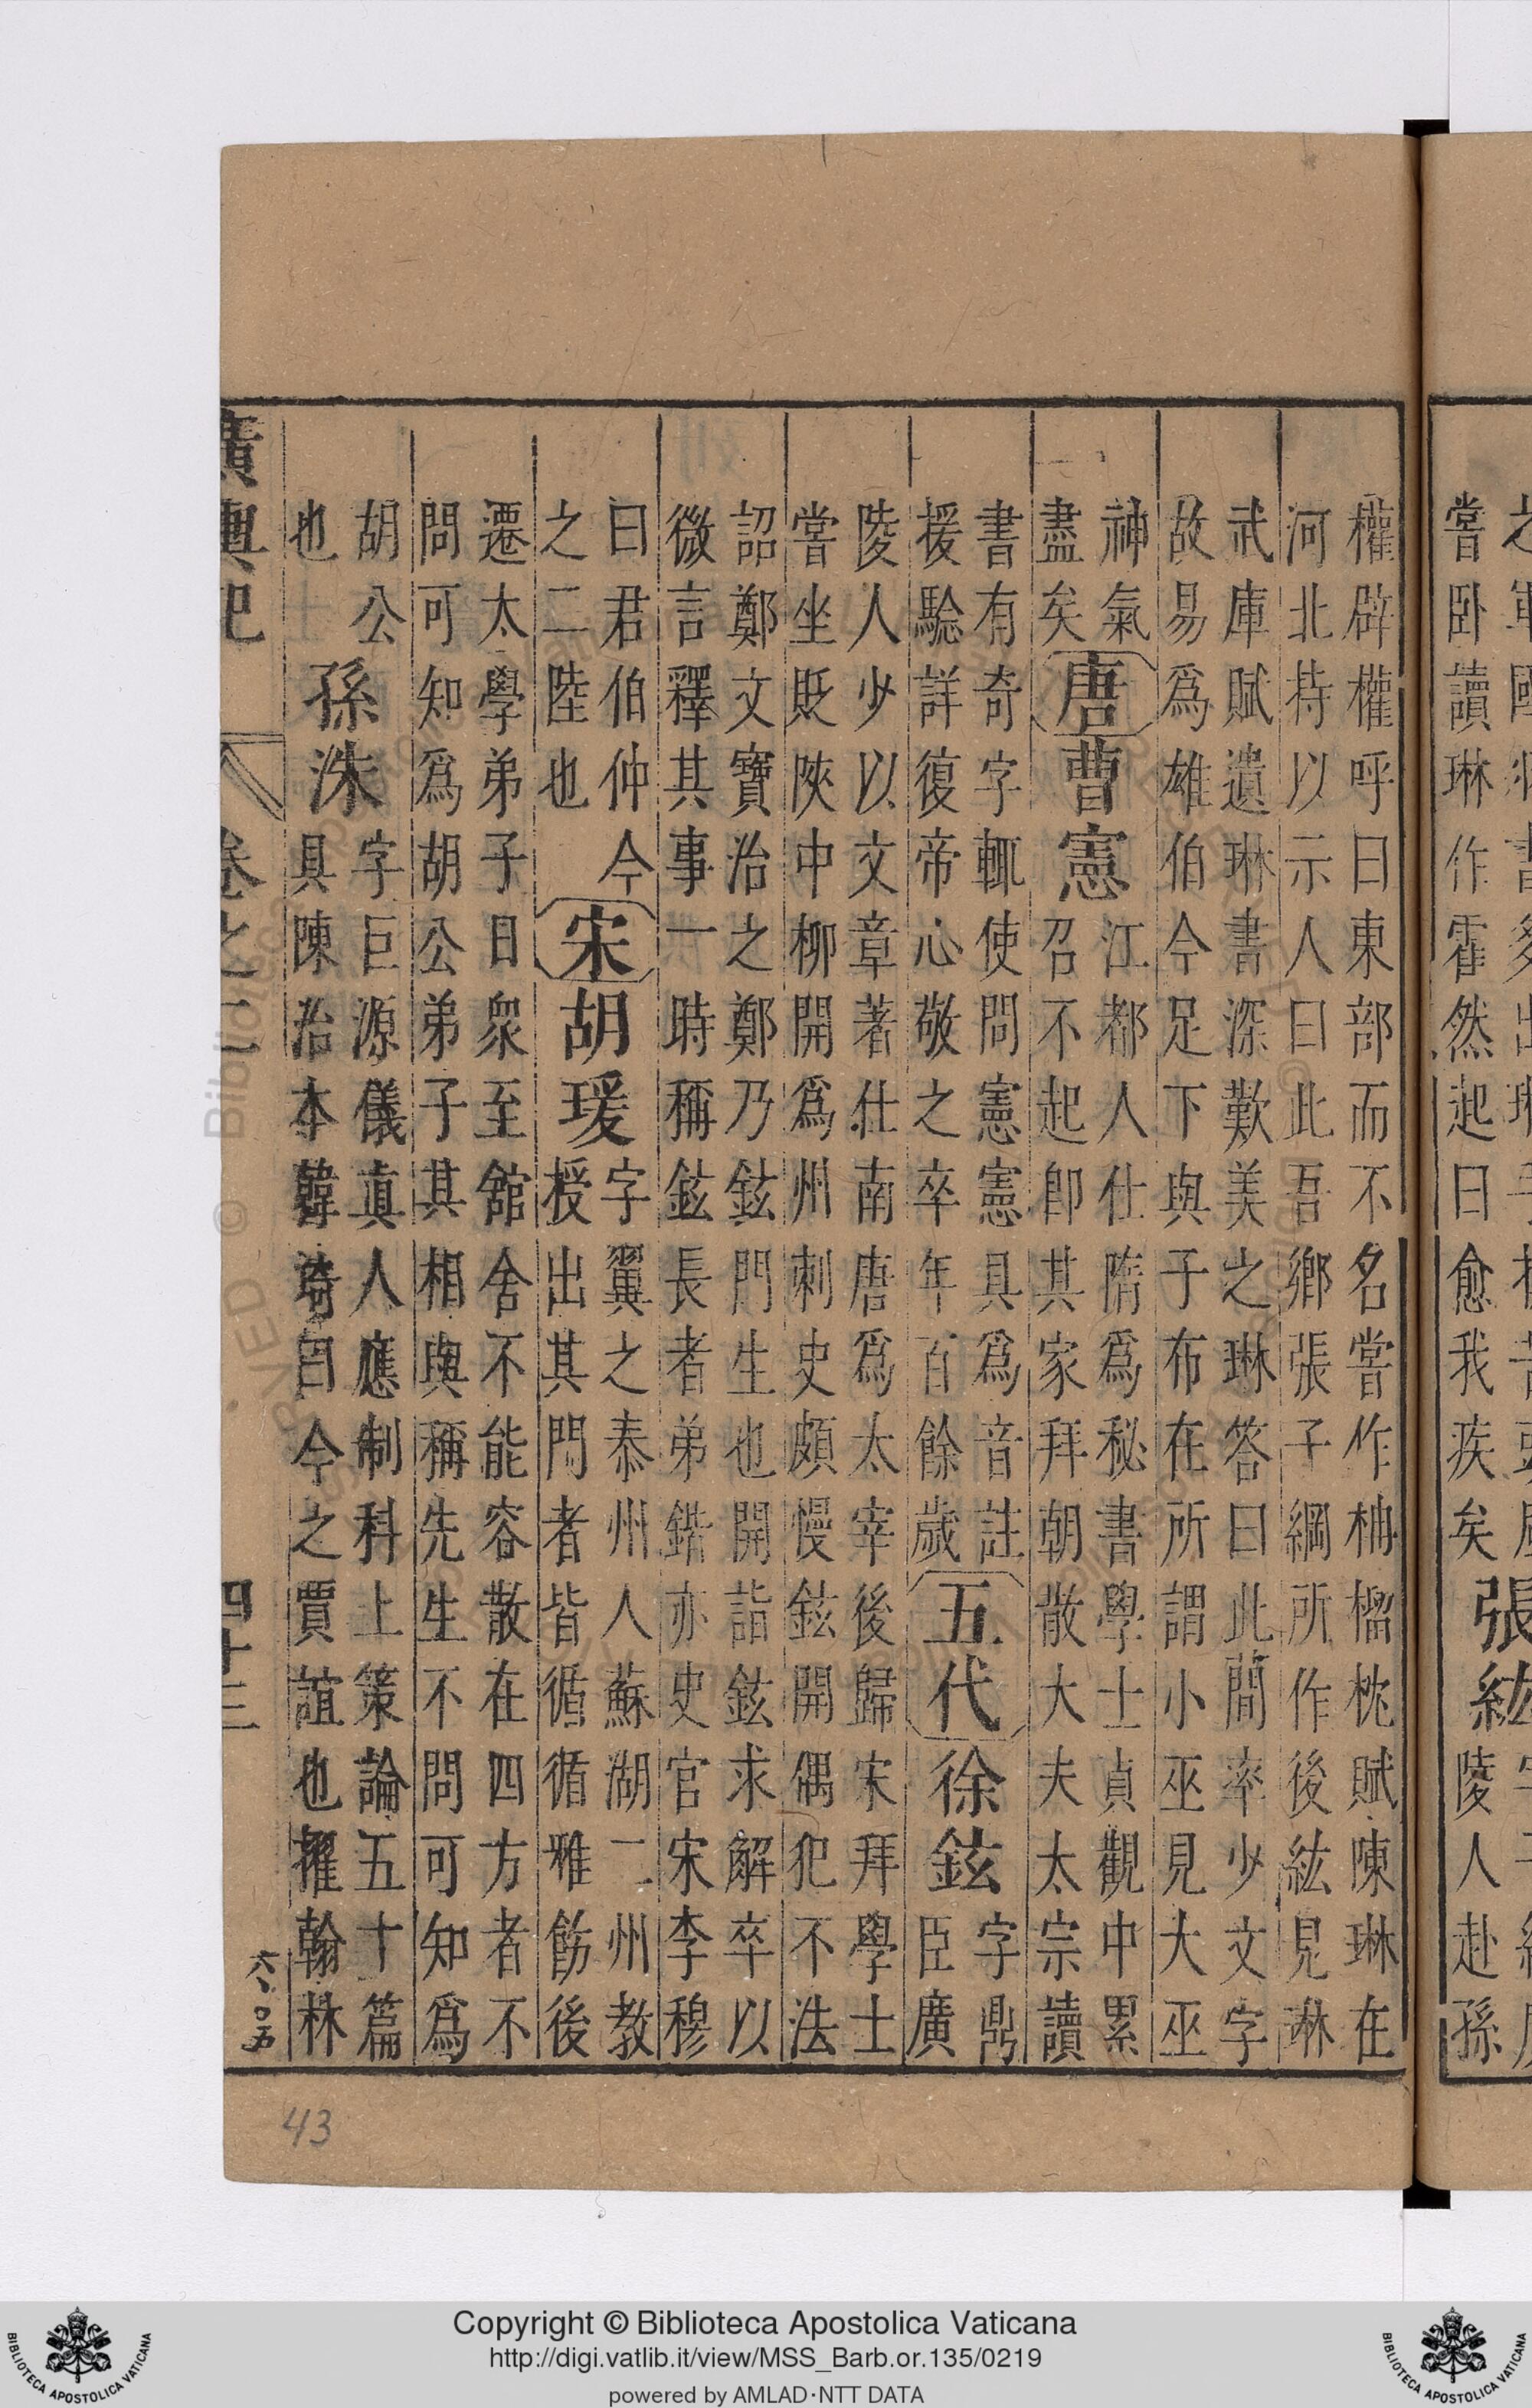 嘗卧讀琳作霍然起曰愈我疾矣
張紘
陵人赴孫
權辟權呼曰東部而不名嘗作柟榴枕賦陳琳在
河北持以示人曰此吾鄉張子綱所作後紘見琳
武庫賦遺琳書深歎美之琳答曰此蕳率少文字
故易爲雄伯今足下與子布在所謂小巫見大巫
神氣
盡矣
唐
曹憲
江都人仕隋爲秘書學士貞觀中累
召不起即其家拜朝散大夫太宗讀
書有奇字輒使問憲憲具爲音註
援驗詳復帝心敬之卒年百餘歲
五代
徐鉉
字鼎
臣廣
陵人少以文章著仕南唐爲太宰後歸宋拜學士
嘗坐貶陝中柳開爲州刺史頗慢鉉開偶犯不法
詔鄭文寶治之鄭乃鉉門生也開詣鉉求解卒以
微言釋其事一時稱鉉長者弟鍇亦史官宋李穆
曰君伯仲今
之二陸也
宋
胡瑗
字翼之泰州人蘇湖二州教
授出其門者皆循循雅飭後
遷太學弟子日眾至舘舍不能容散在四方者不
問可知爲胡公弟子其相與稱先生不問可知爲
胡公
也
孫洙
字巨源儀眞人應制科上策論五十篇
具陳治本韓琦曰今之賈誼也擢翰林
廣輿記
卷之二
四十三
43
Copyright © Biblioteca Apostolica Vaticana
http://digi.vatlib.it/view/MSS_Barb.or.135/0219
powered by AMLAD·NTT DATA
BIBLIOTECA APOSTOLICA VATICANA
BIBLIOTECA APOSTOLICA VATICANA